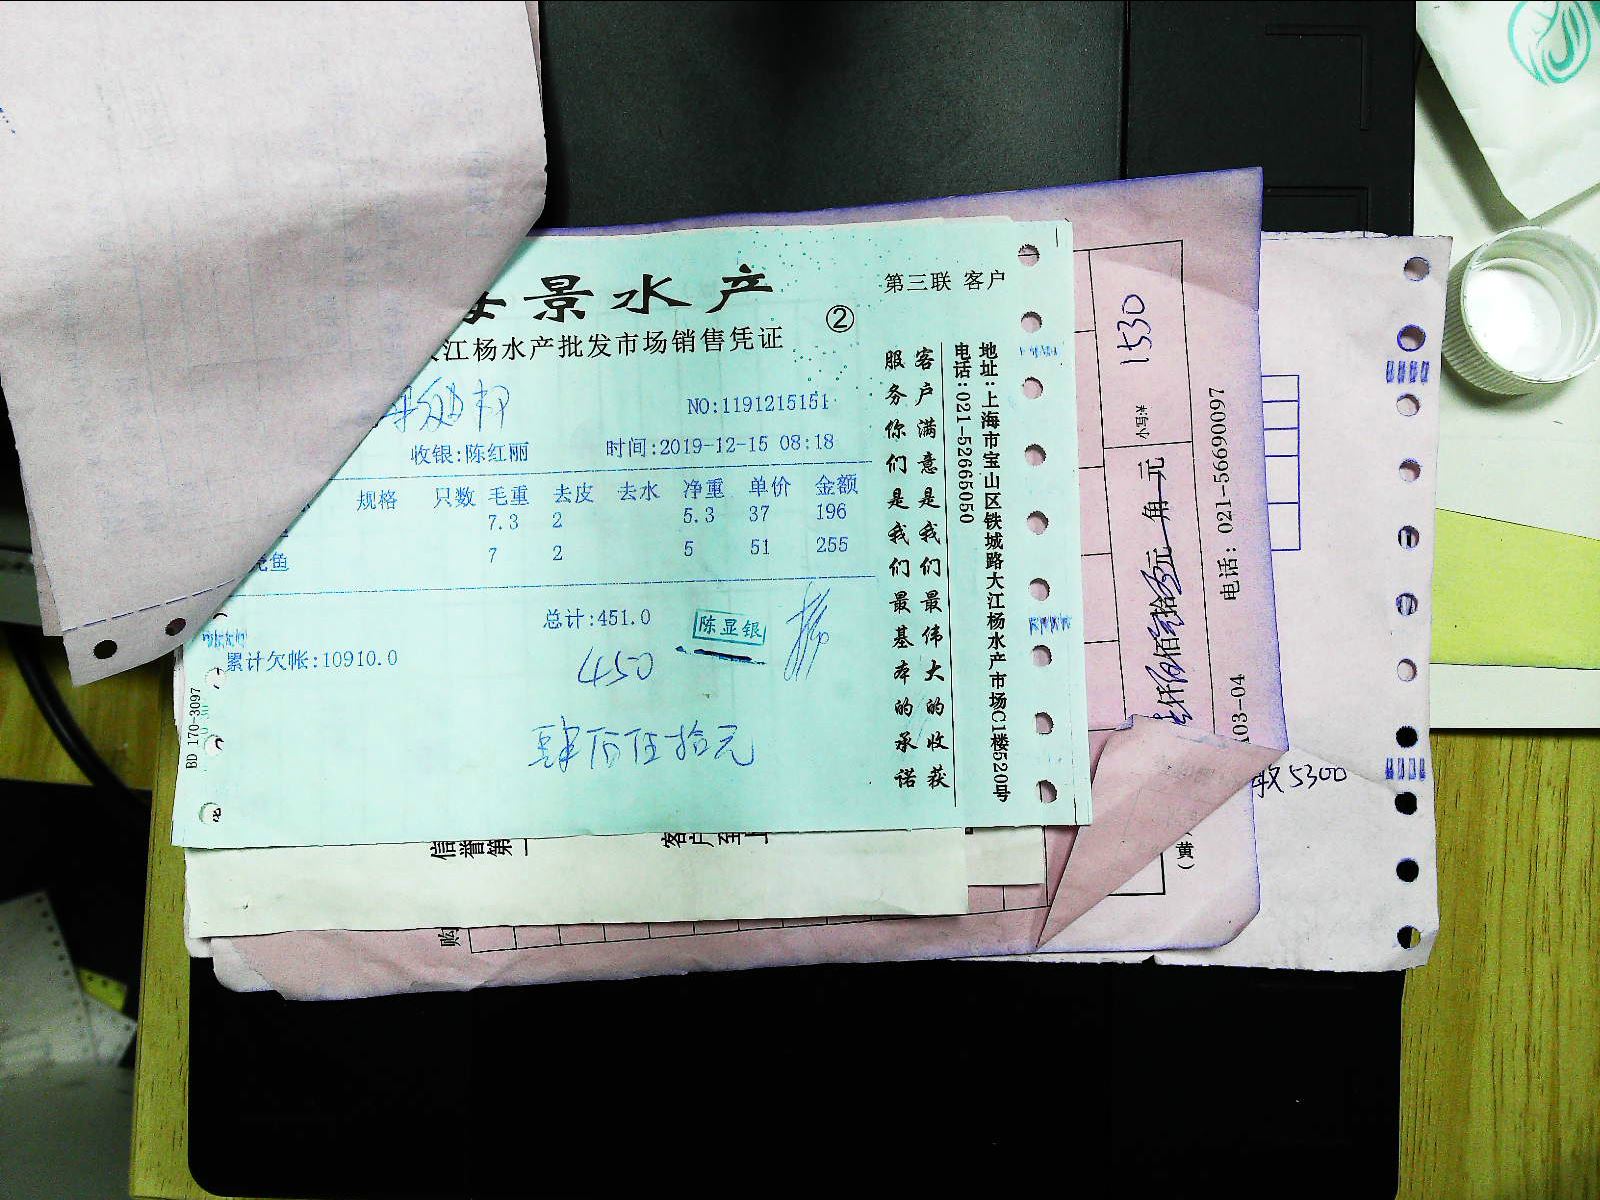 景水产
第三联 客户
②
江杨水产批发市场销售凭证
NO:1191215151
收银:陈红丽
时间:2019-12-15 08:18
规格 只数 毛重 去皮 去水 净重 单价 金额
7.3 2 5.3 37 196
鱼 7 2 5 51 255
总计:451.0
陈显银
累计欠帐:10910.0
450
肆佰伍拾元
BD 170-3097
客户满意是我们最伟大的收获
服务你们是我们最基本的承诺
地址:上海市宝山区铁城路大江杨水产市场C1楼520号
电话:021-52665050
1530
小写¥
元 角 元
电话: 021-56690097
A03-04
5300
(黄)
信誉第
客户至上
购